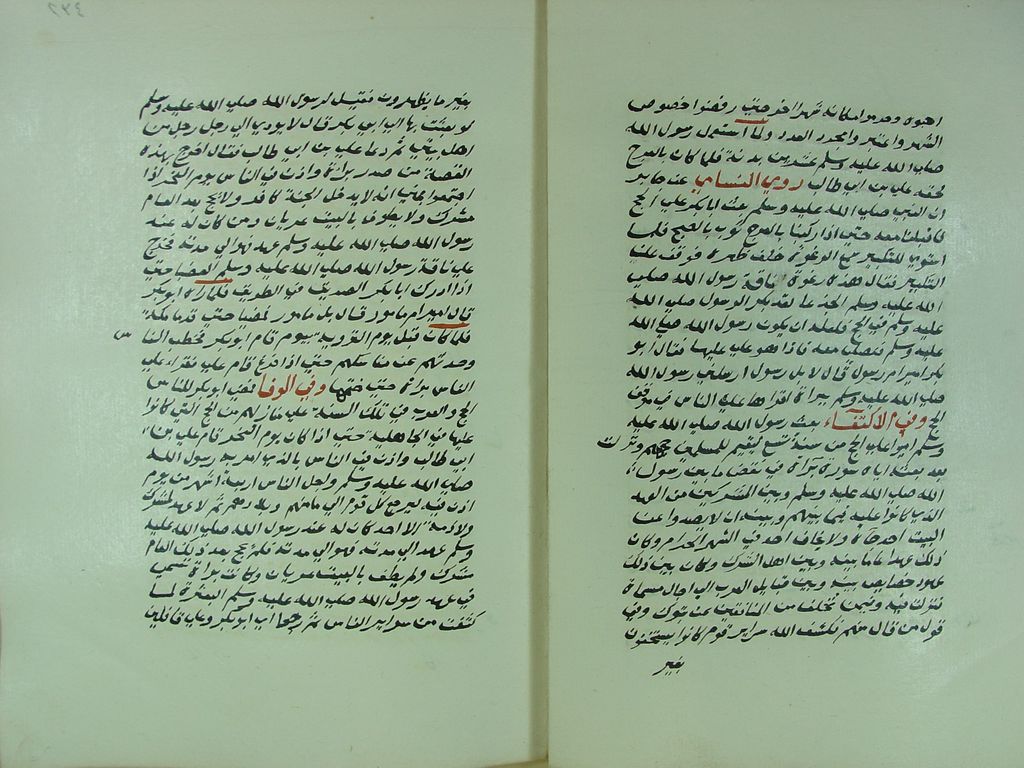 احبوه وحرموا مكانه شهرا اخر حتى رفضوا خصوص
الشهر واعتبروا مجرد العدد ولما استعمل رسول الله
صلى الله عليه وسلم عشرين بدنة فلما كان بالعرج
لحقه علي بن ابي طالب روي النسائي عن جابر
ان النبي صلى الله عليه وسلم بعث ابا بكر على الحج
فاقبلنا معه حتى اذا كنا بالعرج ثوب بالصبح فلما
استوى للتكبير سمع الرغوة خلف ظهره فوقف عن
التكبير فقال هذه رغوة ناقة رسول الله صلى
الله عليه وسلم الجدعا لقد بدا لرسول صلى الله
عليه وسلم في الحج فلعله ان يكون رسول الله صلى الله
عليه وسلم فنصلي معه فاذا هو علي عليها فقال ابو
بكر امير ام رسول قال لا بل رسول ارسلني رسول الله
صلى الله عليه وسلم ببراة اقراها على الناس في موقف
الحج وفي الاكتفاء بعث رسول الله صلى الله عليه
وسلم اميرا على الحج من سنة تسع ليقيم للمسلمين حجهم ونزلت
بعد بعثه اياه سورة براة في نقض ما بين رسول
الله صلى الله عليه وسلم وبين المشركين من العهد
الذي كانوا عليه فيما بينهم وبينه ان لا يصد وا عن
البيت احد جاه ولا يخاف احد في الشهر الحرام وكان
ذلك عهدا عاما بينه وبين اهل الشرك وكان بين ذلك
عهود خصايص بينه وبين قبايل العرب الى اجال مسماة
فنزلت فيه وفيمن تخلف من المنافقين عن تبوك وفي
قول من قال منهم فكشف الله سراير قوم كانوا يستخفون
بغير
بغير ما يظهرون فقيل لرسول الله صلى الله عليه وسلم
لو بعثت بها الى ابي بكر قال لا يودي الى رجل رجل من
اهل بيتي ثم دعا علي بن ابي طالب فقال اخرج بهذه
القصة من صدر براة واذن في الناس يوم النحر اذا
اجتمعوا بمنى انه لا يدخل الجنة كافر ولا يحج بعد العام
مشرك ولا يطوف بالبيت عريان ومن كان له عند
رسول الله صلى الله عليه وسلم عهد فهو الى مدته فخرج
علي ناقة رسول الله صلى الله عليه وسلم العضبا حتى
اذا ادرك ابا بكر الصديق في الطريق فلما راه ابو بكر
قال امير ام مامور قال بل مامور ثم مضيا حتى قدما مكة
فلما كان قبل يوم التروية بيوم قام ابو بكر فخطب النا
س
وحدثهم عن مناسكهم حتى اذا فرغ قام علي فقراء على
الناس براة حتى ختمها وفي الوفا فبعث ابو بكر للناس
الحج والعرب في تلك السنة على منازلهم من الحج التي كانوا
عليها في الجاهلية حتى اذا كان يوم النحر قام علي بن
ابي طالب واذن في الناس بالذي امر به رسول الله
صلى الله عليه وسلم واجل الناس اربعة اشهر من يوم
اذن فيه ليرجع كل قوم الى مامنهم وبلادهم ثم لا عهد لمشرك
ولا ذمة الا احد كان له عند رسول الله صلى الله عليه
وسلم عهد الى مدته فهو الى مدته فلم يحج بعد ذلك العام
مشرك ولم يطف بالبيت عريان وكانت براة تسمى
في عهد رسول الله صلى الله عليه وسلم المبعثرة لما
كشفت من سراير الناس ثم رجعا اي ابو بكر وعلي قافلين